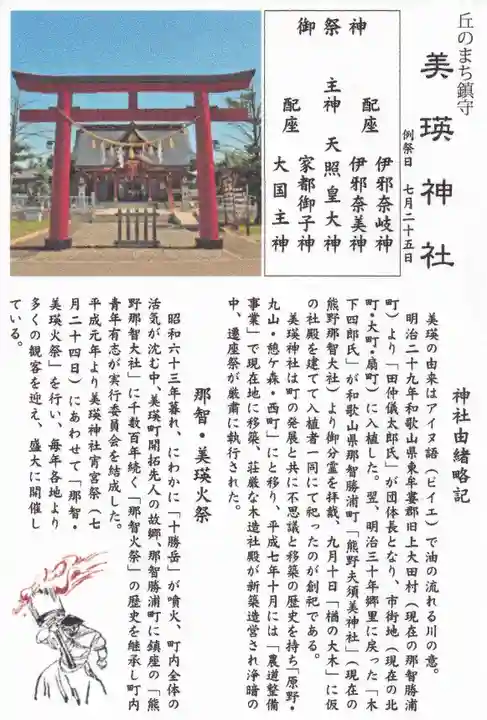 丘のまち鎮守
美瑛神社
例祭日 七月二十五日
御祭神
配座 伊邪奈岐神
伊邪奈美神
主神 天照皇大神
配座 家都御子神
大国主神
神社由緒略記
美瑛の由来はアイヌ語(ピイエ)で油の流れる川の意。
明治二十九年和歌山県東牟婁郡旧上大田村(現在の那智勝浦
町)より「田仲儀太郎氏」が団体長となり、市街地(現在の北
町・大町・扇町)に入植した。翌、明治三十年郷里に戻った「木
下四郎氏」が和歌山県那智勝浦町「熊野夫須美神社」(現在の
熊野那智大社)より御分霊を拝戴、九月十日「楢の大木」に仮
の社殿を建てて入植者一同にて祀ったのが創祀である。
美瑛神社は町の発展と共に不思議と移築の歴史を持ち「原野・
丸山・憩ケ森・西町」にと移り、平成七年十月には「農道整備
事業」で現在地に移築、荘厳な木造社殿が新築造営され浄暗の
中、遷座祭が厳粛に執行された。
那智・美瑛火祭
昭和六十三年暮れ、にわかに「十勝岳」が噴火、町内全体の
活気が沈む中、美瑛町開拓先人の故郷、那智勝浦町に鎮座の「熊
野那智大社」に千数百年続く「那智火祭」の歴史を継承し町内
青年有志が実行委員会を結成した。
平成元年より美瑛神社宵宮祭(七
月二十四日)にあわせて「那智・
美瑛火祭」を行い、毎年各地より
多くの観客を迎え、盛大に開催し
ている。